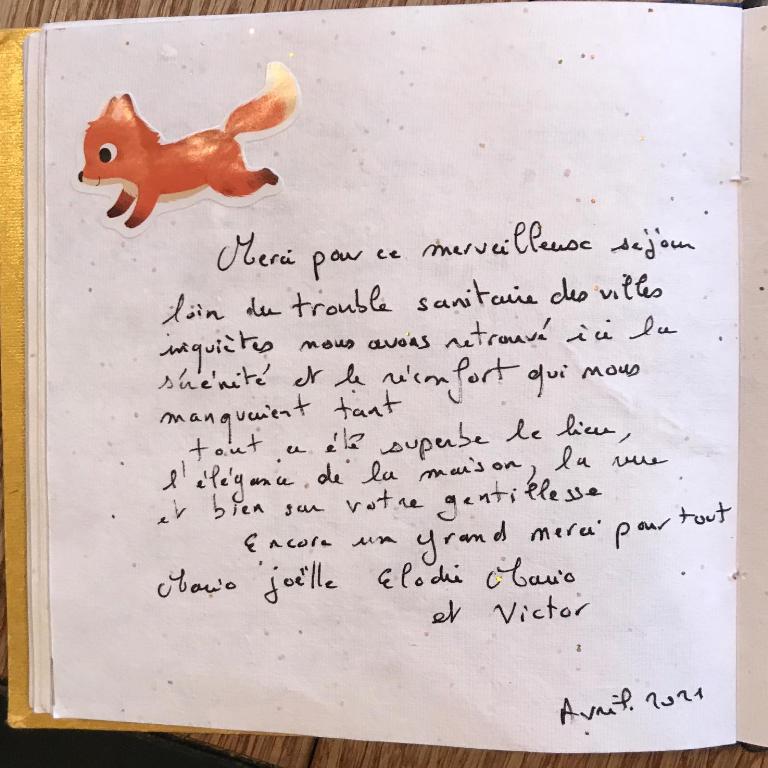 Merci pour ce merveilleuse séjour
loin du trouble sanitaire des villes
inquiètes nous avons retrouvé ici la
sérénité et le réconfort qui nous
manquaient tant
tout a été superbe le lieu,
l'élégance de la maison, la vue
et bien sur votre gentillesse
Encore un grand merci pour tout
Mario joëlle Elodie Mario
et Victor
Avril 2021